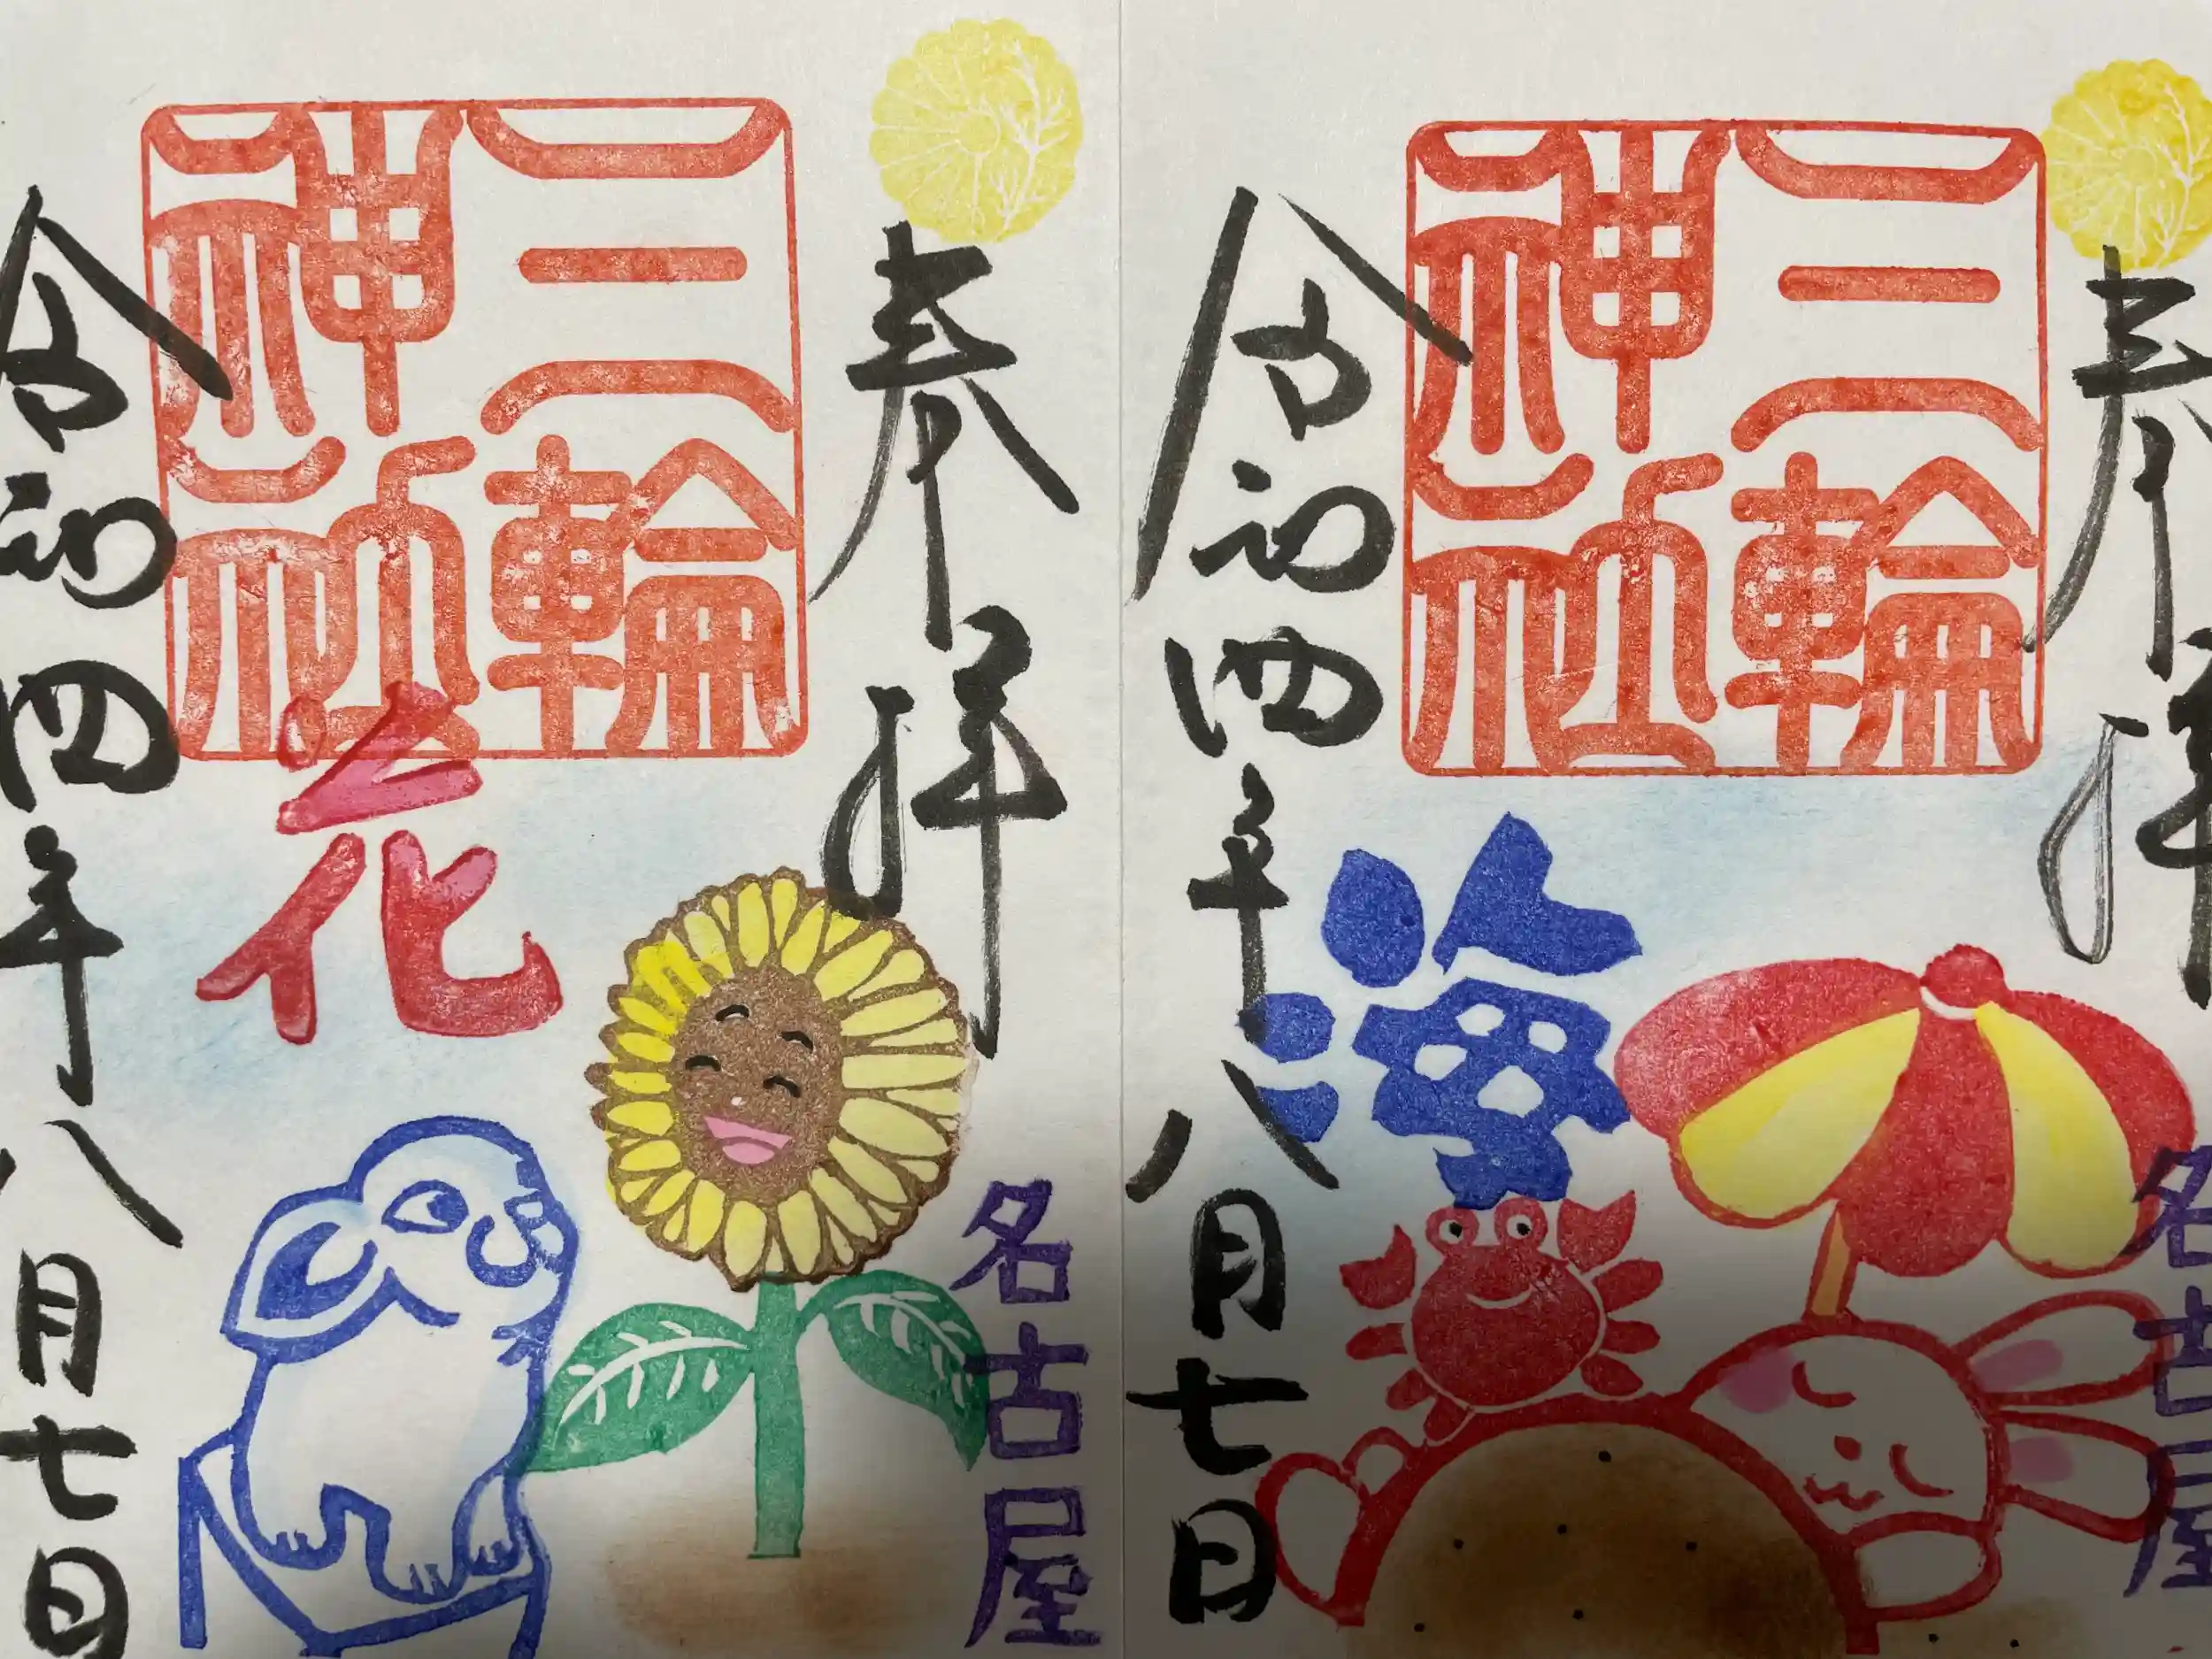 奉拝
三輪
神社
花
名古屋
令和四年八月七日
奉拝
三輪
神社
海
名古屋
令和四年八月七日